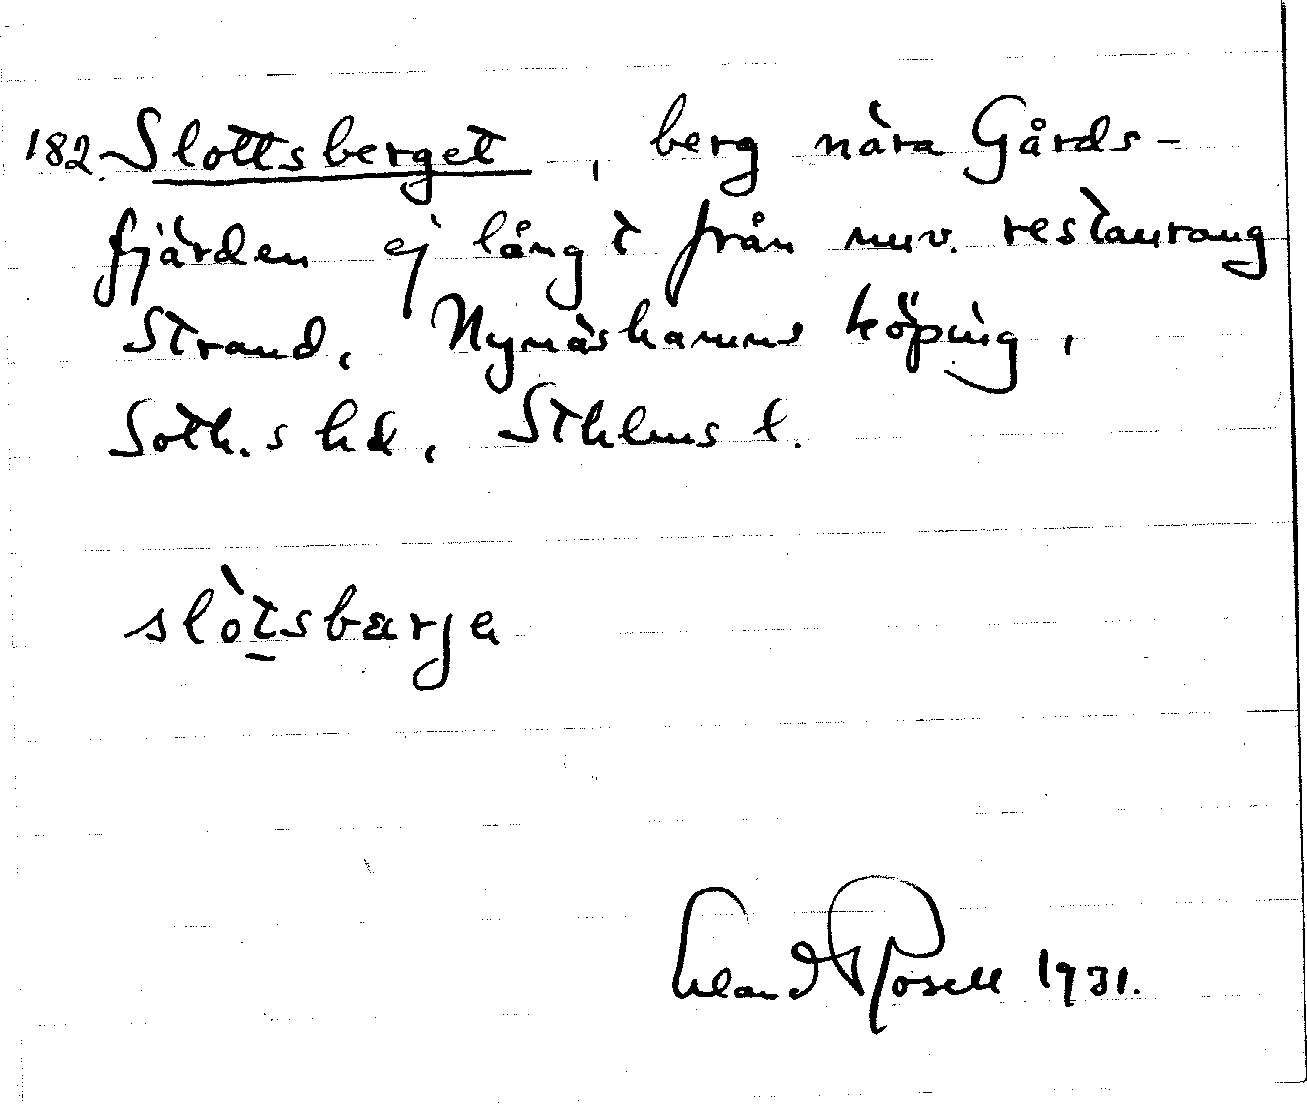 182. Slottsberget, berg nära Gårds-
fjärden ej långt från nuv. restaurang
Strand, Nynäshamns köping,
Soth.s hd, Sthlms l.
slòtsbærje
Erland Rosell 1931.